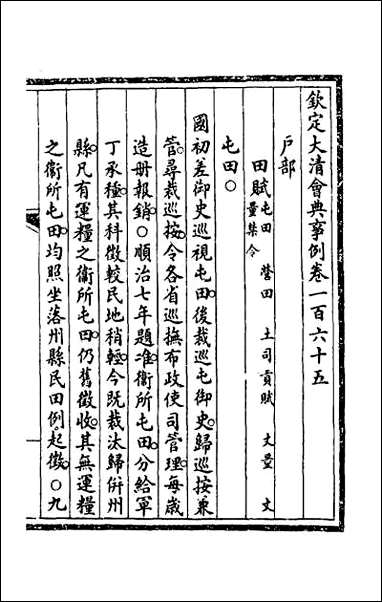 欽定大清會典事例卷一百六十五
戶部
田賦屯田 營田 土司貢賦 丈量 丈
量禁令
屯田○
國初差御史巡視屯田後裁巡屯御史歸巡按兼
管尋裁巡按令各省巡撫布政使司管理每歲
造册報銷○順治七年題准衛所屯田分給軍
丁承種其科徵較民地稍輕今既裁汰歸併州
縣凡有運糧之衛所屯田仍舊徵收其無運糧
之衛所屯田均照坐落州縣民田例起徵○九